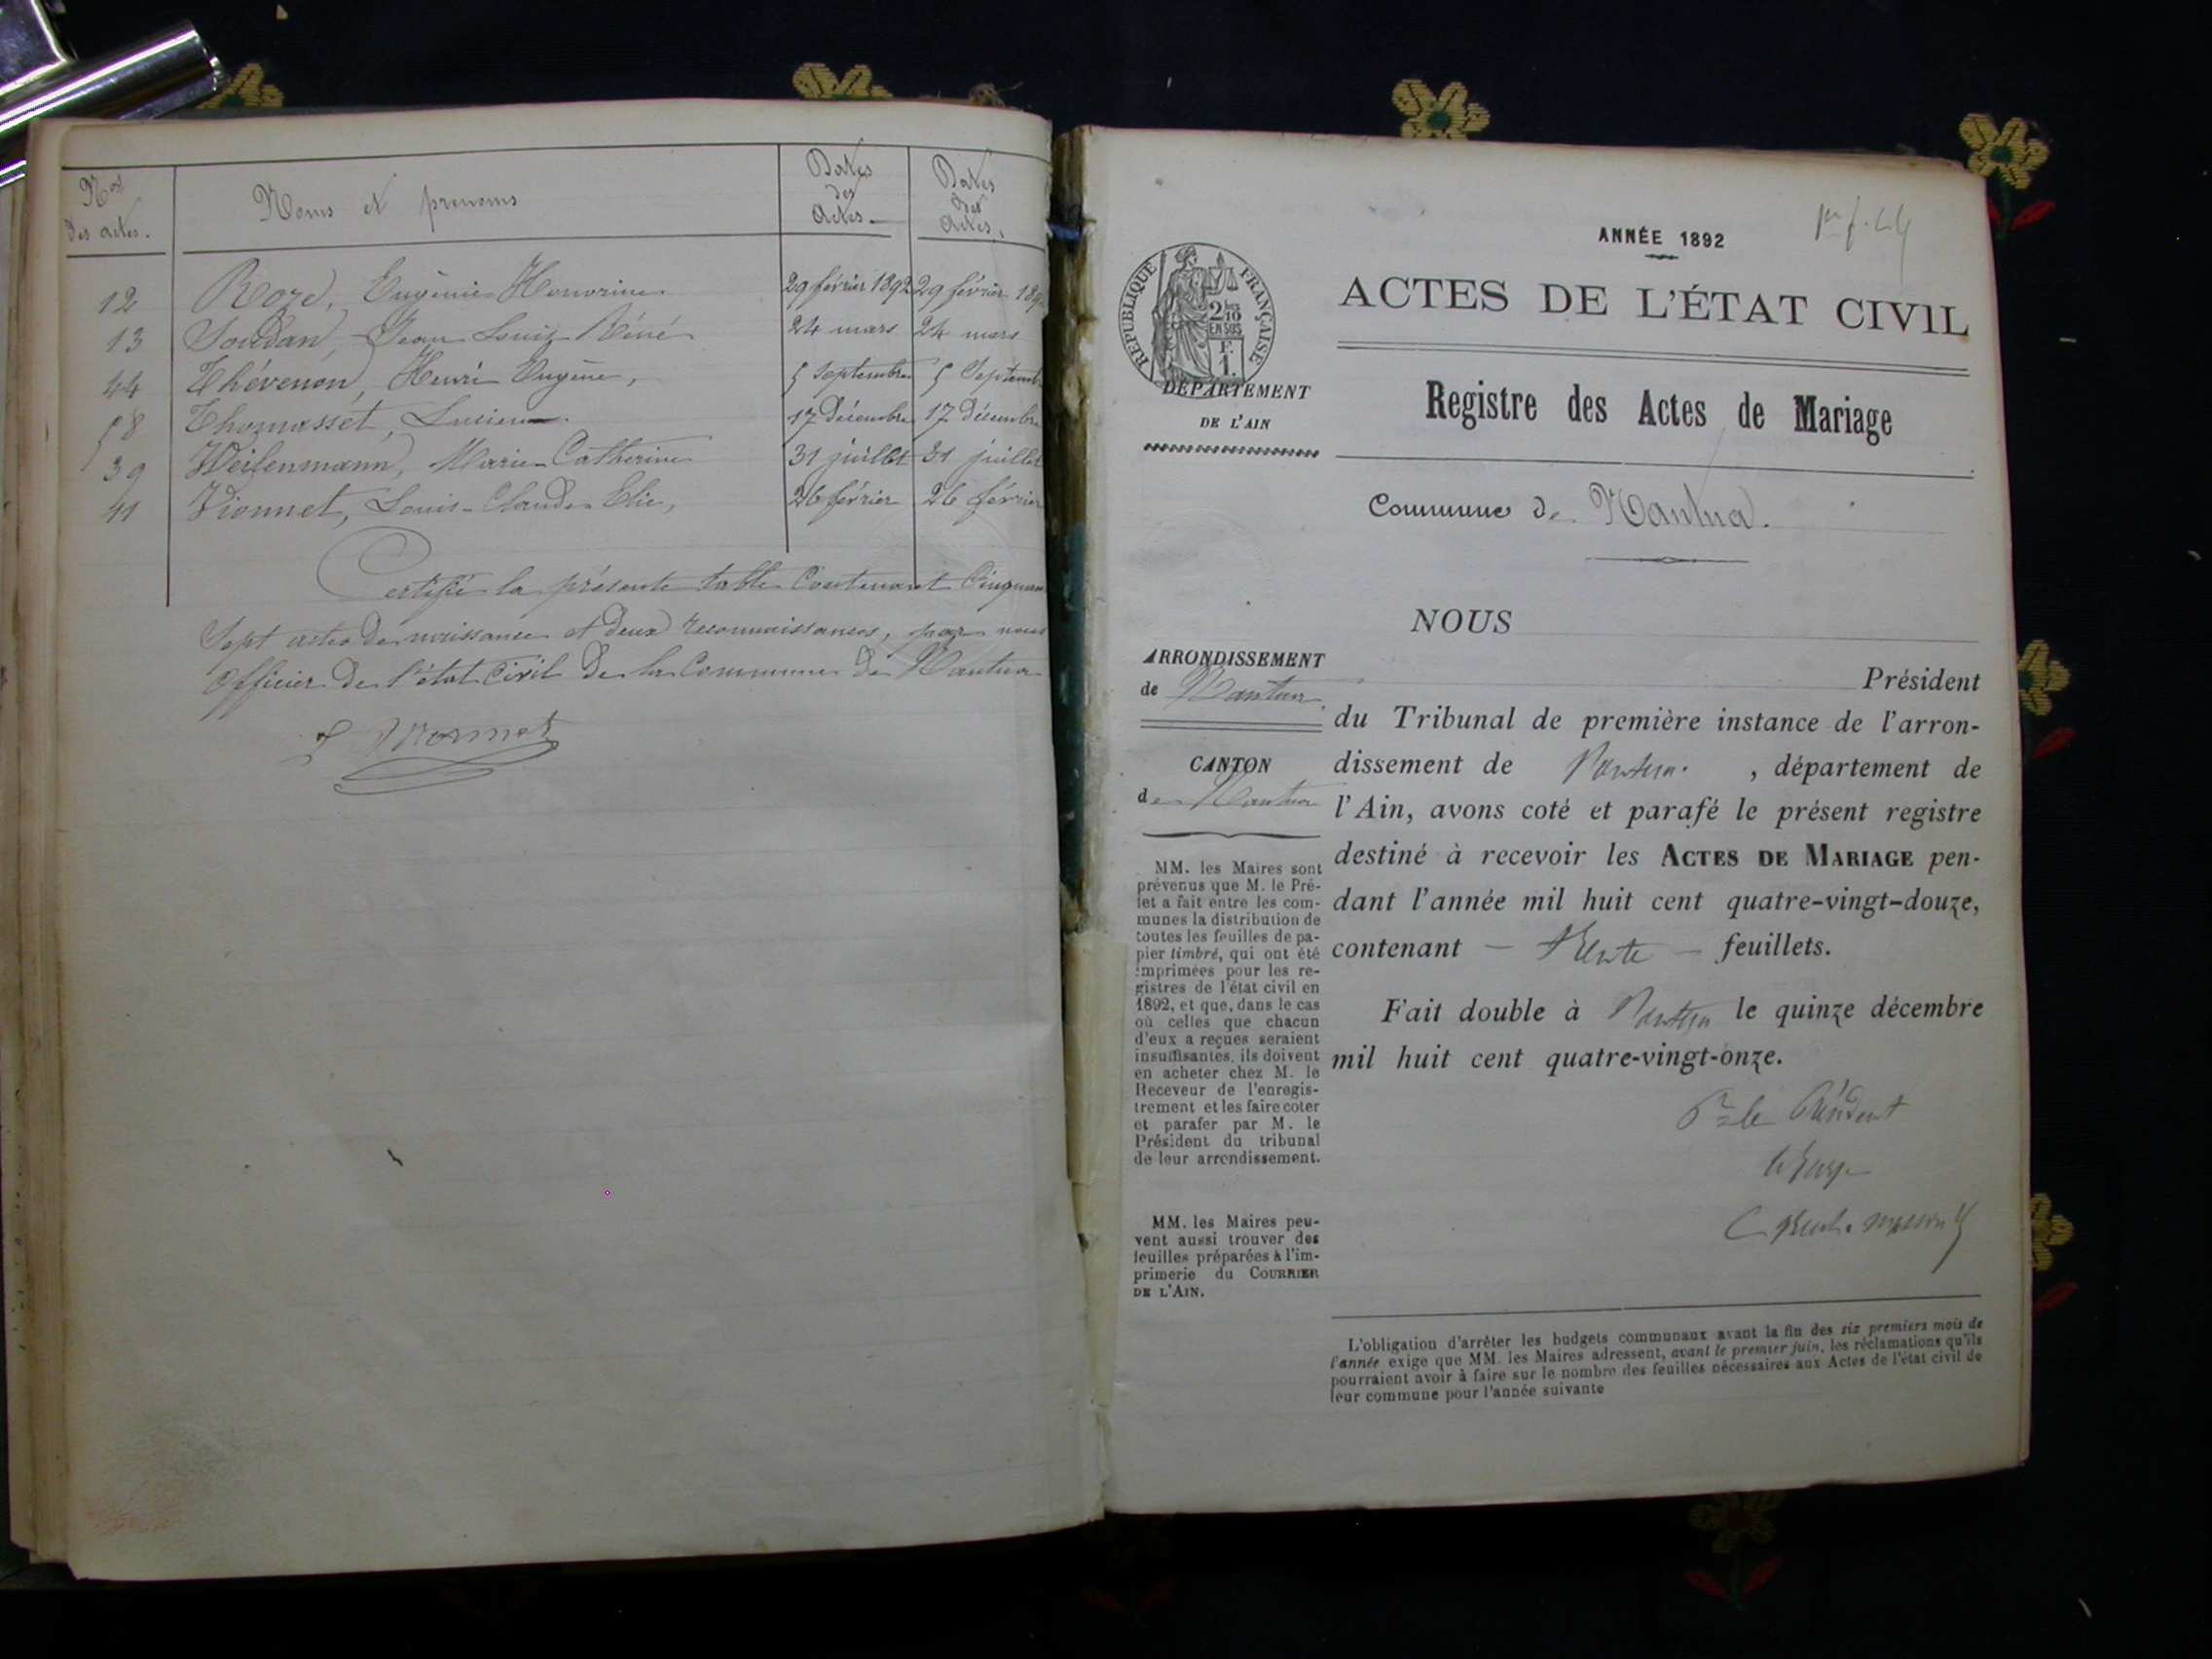 Nos des actes.
Noms et prenoms
Dates des actes.
Dates des actes.
12 Roze, Eugénie Honorine 29 février 1892 29 février 189
13 Soudan, Jean Louis Réné 24 mars 24 mars
44 Thévenon, Henri Eugène, 5 Septembre 5 Septemb
58 Thomasset, Lucien 17 Décembre 17 décembre
39 Weilenmann, Marie Catherine 31 juillet 31 juillet
11 Vionnet, Louis-Claude Elie, 26 février 26 février
Certifié la présente table contenant Cinquan
Sept actes de naissance et deux reconnaissances, par nous
Officier de l'état Civil de la Commune de Nantua
1er f.
ANNÉE 1892
ACTES DE L'ÉTAT CIVIL
RÉPUBLIQUE FRANÇAISE
2/10 EN SUS
F. 1.
DÉPARTEMENT
DE L'AIN
Registre des Actes de Mariage
Commune de Nantua.
NOUS
ARRONDISSEMENT
de Nantua
CANTON
de Nantua
Président
du Tribunal de première instance de l'arron-
dissement de Nantua , département de
l'Ain, avons coté et parafé le présent registre
destiné à recevoir les ACTES DE MARIAGE pen-
dant l'année mil huit cent quatre-vingt-douze,
contenant — trente — feuillets.
Fait double à Nantua le quinze décembre
mil huit cent quatre-vingt-onze.
Pr le Président
le Juge
MM. les Maires sont
prévenus que M. le Pré-
fet a fait entre les com-
munes la distribution de
toutes les feuilles de pa-
pier timbré, qui ont été
imprimées pour les re-
gistres de l'état civil en
1892, et que, dans le cas
où celles que chacun
d'eux a reçues seraient
insuffisantes, ils doivent
en acheter chez M. le
Receveur de l'enregis-
trement et les faire coter
et parafer par M. le
Président du tribunal
de leur arrondissement.
MM. les Maires peu-
vent aussi trouver des
feuilles préparées à l'im-
primerie du COURRIER
DE L'AIN.
L'obligation d'arrêter les budgets communaux avant la fin des six premiers mois de
l'année exige que MM. les Maires adressent, avant le premier juin, les réclamations qu'ils
pourraient avoir à faire sur le nombre des feuilles nécessaires aux Actes de l'état civil de
leur commune pour l'année suivante